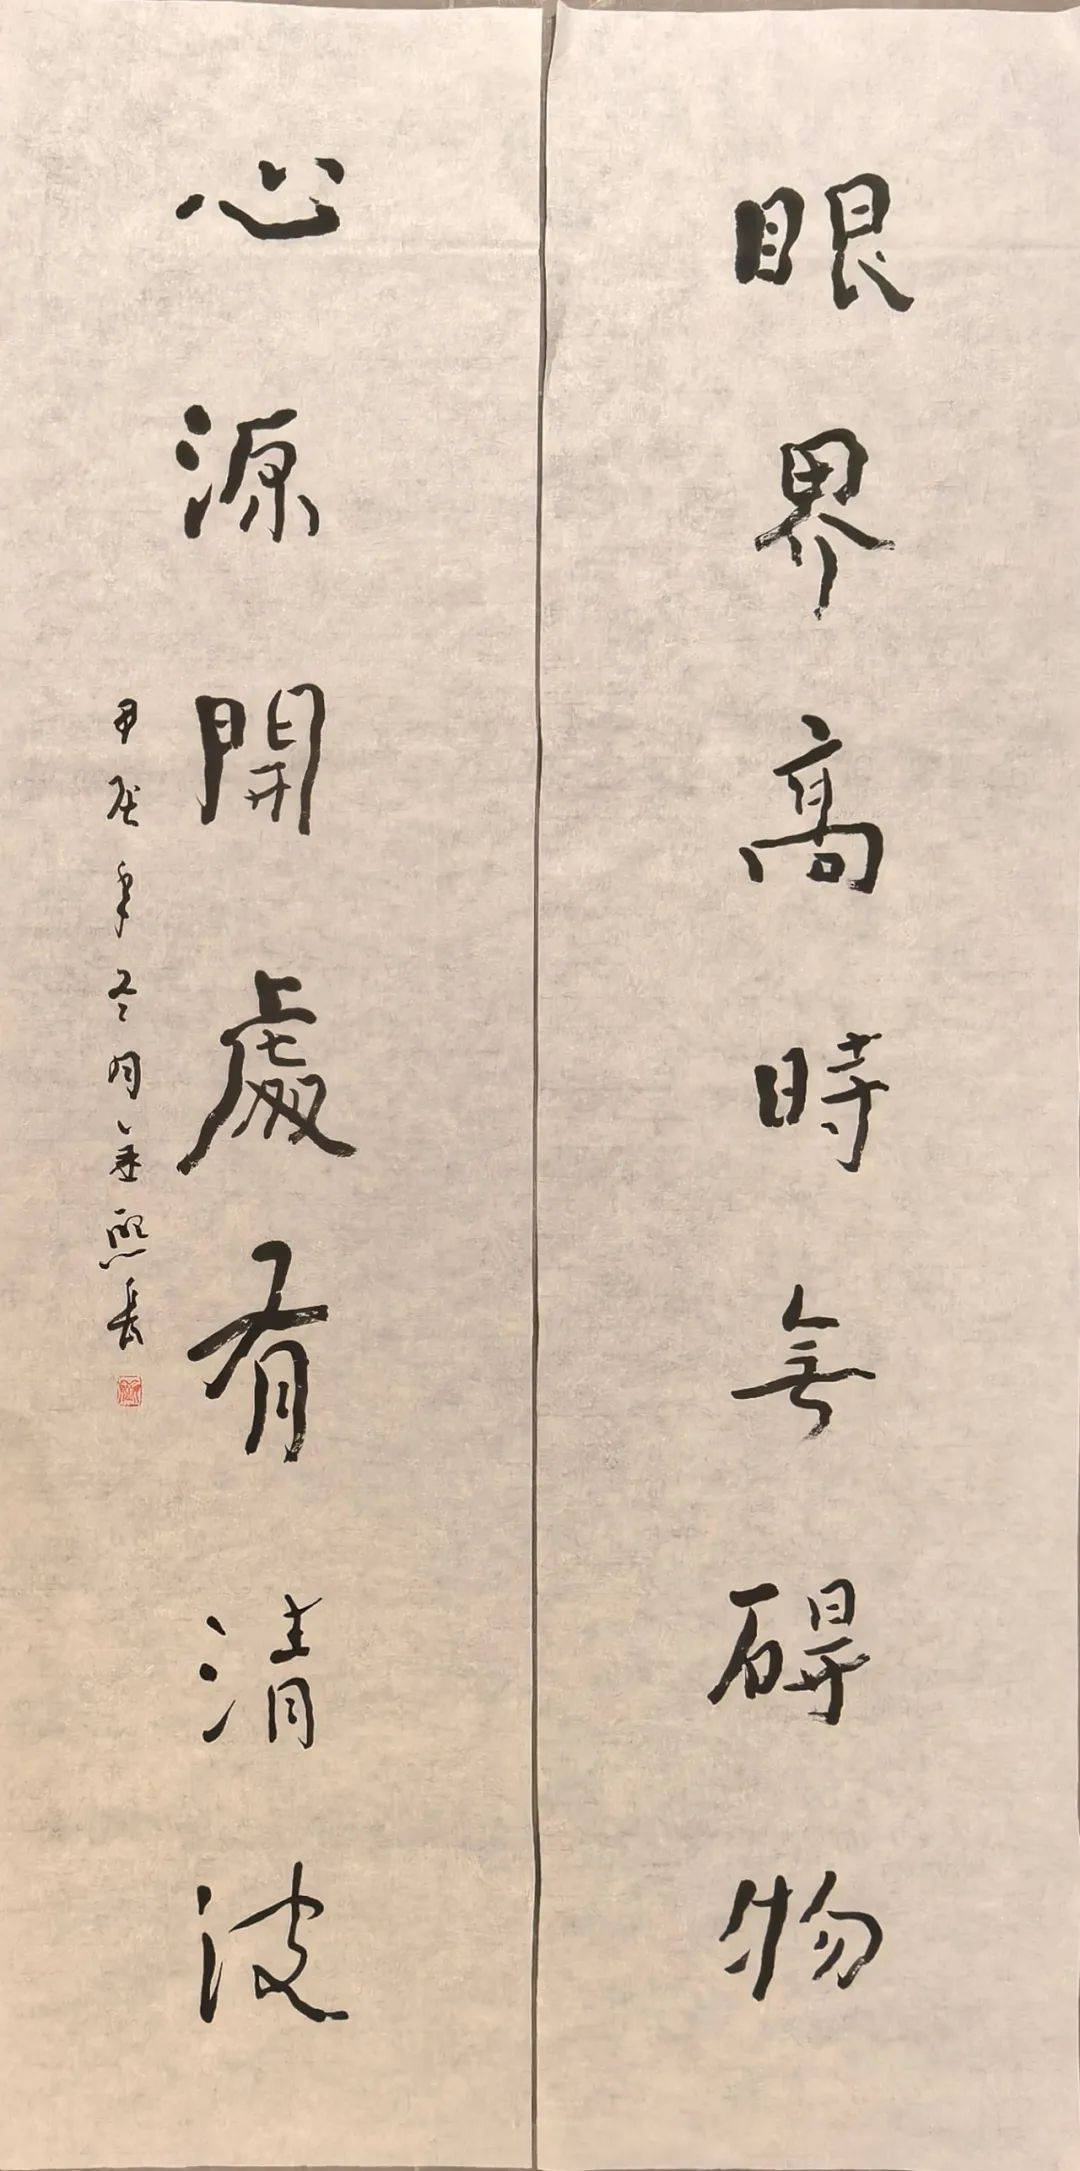 眼界高時無碍物
心源開處有清波
甲辰年冬月姜熙長